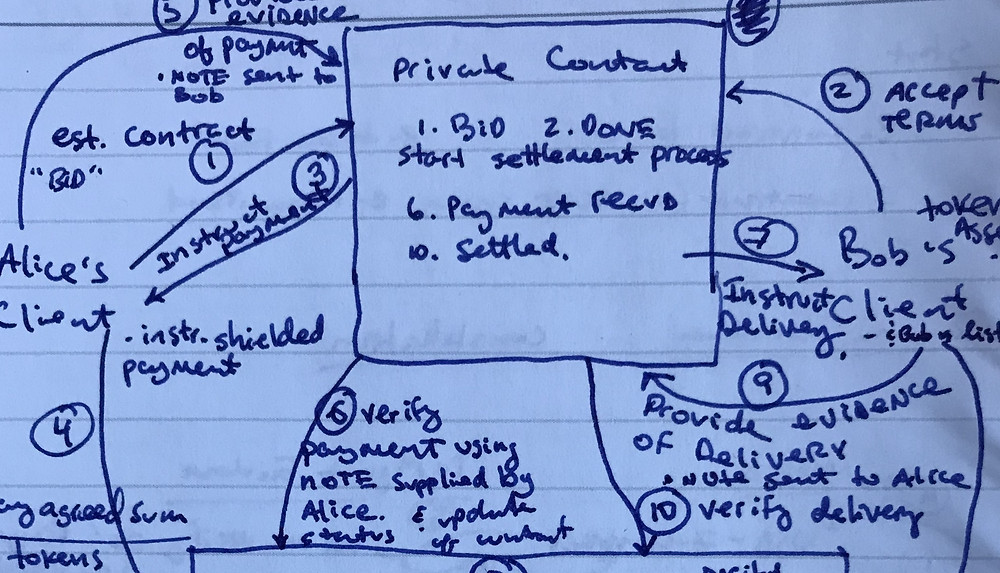 5 Provide
evidence
of payment
• NOTE sent to
Bob
est. contract
1
"BID"
3
Instruct
payment
Alice's
Client
• instr. shielded
payment
Private Contract
1. BID 2. DONE
start settlement process
6. Payment recvd
10. Settled.
2 ACCEPT
TERMS
7
Instruct
Delivery.
Bob's
Client
token
Ass
4
agreed sum
tokens
6 verify
payment using
NOTE supplied by
Alice. & update
status of contract
9
Provide evidence
OF Delivery
• NOTE sent to Alice
10 verify delivery